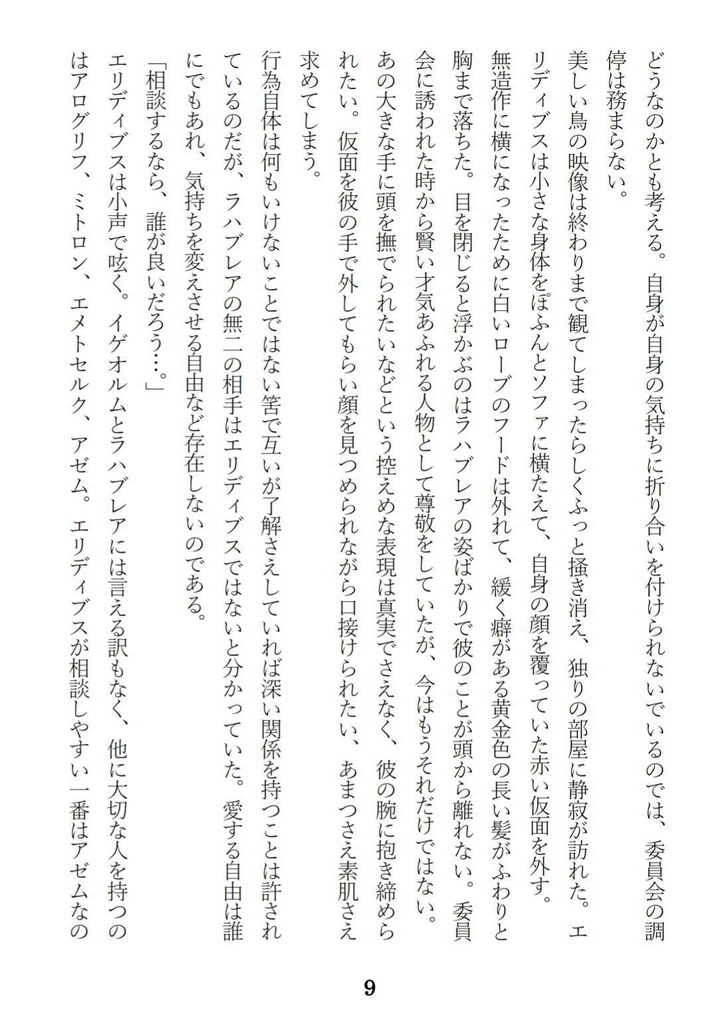 どうなのかとも考える。自身が自身の気持ちに折り合いを付けられないでいるのでは、委員会の調
停は務まらない。
美しい鳥の映像は終わりまで観てしまったらしくふっと掻き消え、独りの部屋に静寂が訪れた。エ
リディブスは小さな身体をぽふんとソファに横たえて、自身の顔を覆っていた赤い仮面を外す。
無造作に横になったために白いローブのフードは外れて、緩く癖がある黄金色の長い髪がふわりと
胸まで落ちた。目を閉じると浮かぶのはラハブレアの姿ばかりで彼のことが頭から離れない。委員
会に誘われた時から賢い才気あふれる人物として尊敬をしていたが、今はもうそれだけではない。
あの大きな手に頭を撫でられたいなどという控えめな表現は真実でさえなく、彼の腕に抱き締めら
れたい。仮面を彼の手で外してもらい顔を見つめられながら口接けられたい、あまつさえ素肌さえ
求めてしまう。
行為自体は何もいけないことではない筈で互いが了解さえしていれば深い関係を持つことは許され
ているのだが、ラハブレアの無二の相手はエリディブスではないと分かっていた。愛する自由は誰
にでもあれ、気持ちを変えさせる自由など存在しないのである。
「相談するなら、誰が良いだろう…。」
エリディブスは小声で呟く。イゲオルムとラハブレアには言える訳もなく、他に大切な人を持つの
はアログリフ、ミトロン、エメトセルク、アゼム。エリディブスが相談しやすい一番はアゼムなの
9